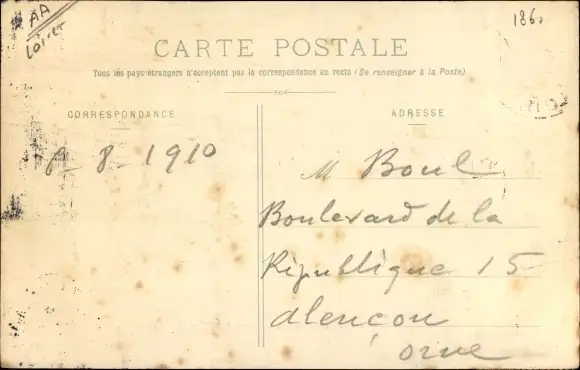 AA
Loiret
CARTE POSTALE
Tous les pays étrangers n'acceptent pas la correspondance au recto (Se renseigner à la Poste)
CORRESPONDANCE
6-8-1910
ADRESSE
M Boul
Boulevard de la
République 15
alençon
orne